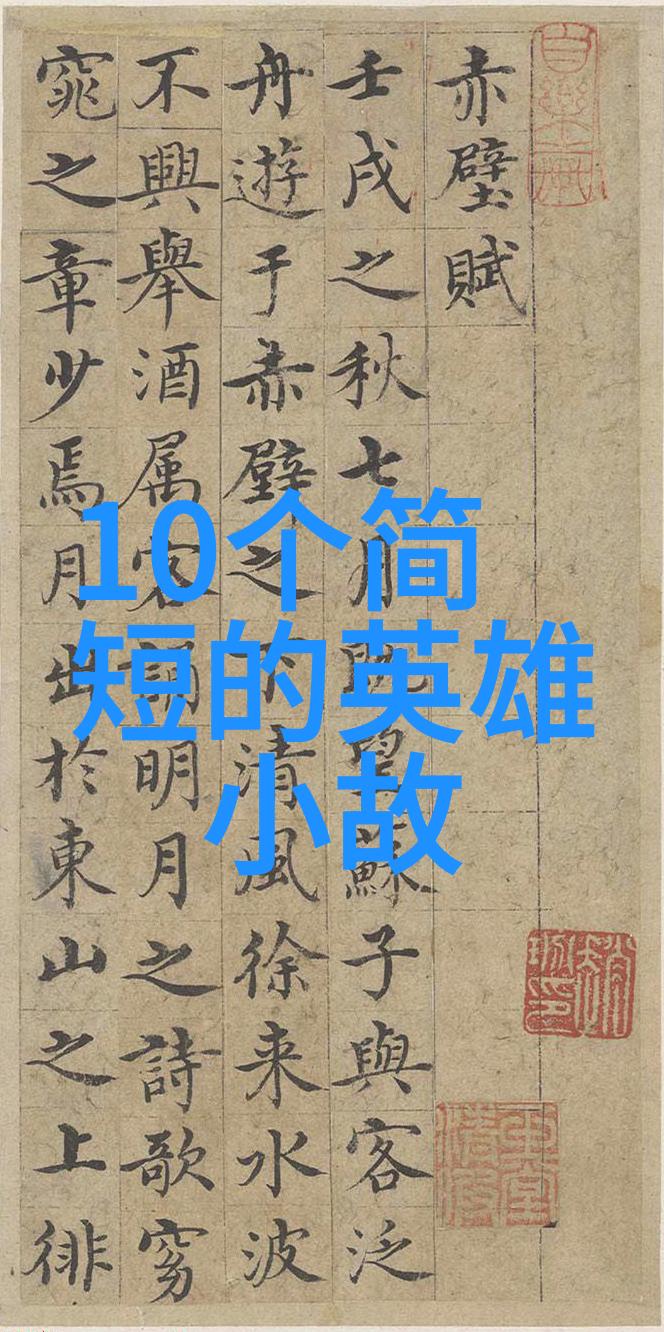 赤壁賦
壬戌之秋七月既望蘇子與客泛
舟遊于赤壁之下清風徐来水波
不興舉酒属客誦明月之詩歌窈
窕之章少焉月出於東山之上徘
10个简
短的英雄
小故